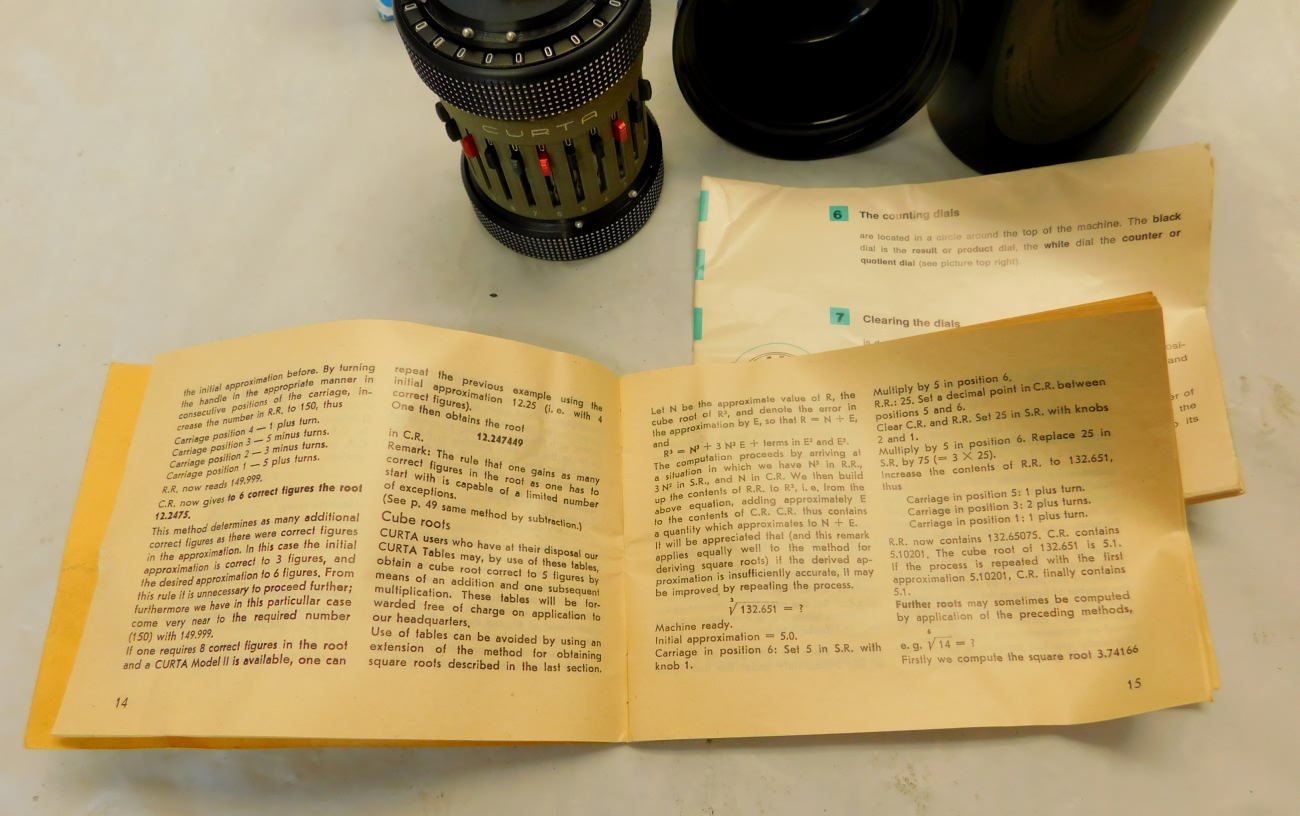 CURTA
6 The counting dials
are located in a circle around the top of the machine. The black
dial is the result or product dial, the white dial the counter or
quotient dial (see picture top right).
7 Clearing the dials
and
the
its
the initial approximation before. By turning
the handle in the appropriate manner in
consecutive positions of the carriage, in-
crease the number in R.R. to 150, thus
Carriage position 4 — 1 plus turn.
Carriage position 3 — 5 minus turns.
Carriage position 2 — 3 minus turns.
Carriage position 1 — 5 plus turns.
R.R. now reads 149.999.
C.R. now gives to 6 correct figures the root
12.2475.
This method determines as many additional
correct figures as there were correct figures
in the approximation. In this case the initial
approximation is correct to 3 figures, and
the desired approximation to 6 figures. From
this rule it is unnecessary to proceed further;
furthermore we have in this particullar case
come very near to the required number
(150) with 149.999.
If one requires 8 correct figures in the root
and a CURTA Model II is available, one can
14
repeat the previous example using the
initial approximation 12.25 (i. e. with 4
correct figures).
One then obtains the root
in C.R. 12.247449
Remark: The rule that one gains as many
correct figures in the root as one has to
start with is capable of a limited number
of exceptions.
(See p. 49 same method by subtraction.)
Cube roots
CURTA users who have at their disposal our
CURTA Tables may, by use of these tables,
obtain a cube root correct to 5 figures by
means of an addition and one subsequent
multiplication. These tables will be for-
warded free of charge on application to
our headquarters.
Use of tables can be avoided by using an
extension of the method for obtaining
square roots described in the last section.
Let N be the approximate value of R, the
cube root of R³, and denote the error in
the approximation by E, so that R = N + E,
and
R³ = N³ + 3 N² E + terms in E² and E³.
The computation proceeds by arriving at
a situation in which we have N³ in R.R.,
3 N² in S.R., and N in C.R. We then build
up the contents of R.R. to R³, i. e. from the
above equation, adding approximately E
to the contents of C.R. C.R. thus contains
a quantity which approximates to N + E.
It will be appreciated that (and this remark
applies equally well to the method for
deriving square roots) if the derived ap-
proximation is insufficiently accurate, it may
be improved by repeating the process.
³√132.651 = ?
Machine ready.
Initial approximation = 5.0.
Carriage in position 6: Set 5 in S.R. with
knob 1.
Multiply by 5 in position 6.
R.R.: 25. Set a decimal point in C.R. between
positions 5 and 6.
Clear C.R. and R.R. Set 25 in S.R. with knobs
2 and 1.
Multiply by 5 in position 6. Replace 25 in
S.R. by 75 (= 3 X 25).
Increase the contents of R.R. to 132.651,
thus
Carriage in position 5: 1 plus turn.
Carriage in position 3: 2 plus turns.
Carriage in position 1: 1 plus turn.
R.R. now contains 132.65075. C.R. contains
5.10201. The cube root of 132.651 is 5.1.
If the process is repeated with the first
approximation 5.10201, C.R. finally contains
5.1.
Further roots may sometimes be computed
by application of the preceding methods,
e. g. ⁴√14 = ?
Firstly we compute the square root 3.74166
15